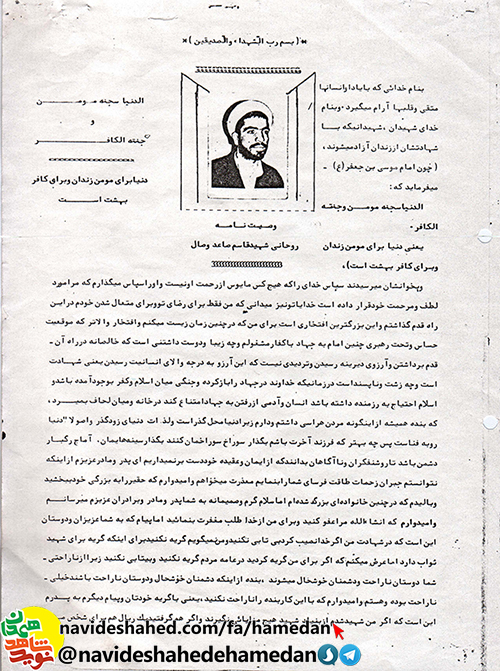 * ( بسم رب الشهداء والصدیقین ) *
بنام خدائی که بایاد اوانسانهای
متقی وقلبها آرام میگیرد ۰وبنام
خدای شهیدان ، شهیدانیکه با
شهادتشان اززندان آزادمیشوند ،
( چون امام موسی بن جعفر (ع)
میفرماید که :
الدنیاسجنه مومن وجنته
الکافر ۰
یعنی دنیا برای مومن زندان
وبرای کافر بهشت است ) ،
الدنیا سجنه مومن
و
جنته الکافر
دنیابرای مومن زندان وبرای کافر
بهشت است
وصیت نامه
روحانی شهیدقاسم صاعد وصال
وپخوانشان میرسیدند سپاس خدای راکه هیچ کس مایوس ازرحمت اونیست واوراسپاس میگذارم که مرامورد
لطف ومرحمت خودقرار داده است خدایاتونیز میدانی که من فقط برای رضای تووبرای متعال شدن خودم دراین
راه قدم گذاشتم واین بزرگترین افتخاری است برای من که درچنین زمان زیست میکنم وافتخار والاتر که موقعیت
حساس وتحت رهبری چنین امام به جهاد باکفارمشغولم وچه زیبا ودوست داشتنی است که خالصانه درراه آن ۰
قدم برداشتن وآرزوی دیرینه رسیدن وتردیدی نیست که این آرزو به درجه والای انسانیت رسیدن یعنی شهادت
است وچه زشت وناپسنداست درزمانیکه خداوند درجهاد رابازکرده وجنگی میان اسلام وکفر بوجودآمده باشدو
اسلام احتیاج به رزمنده داشته باشد انسان وآدمی ازرفتن به جهادامتناع کند درخانه ومیان لحاف بمیرد ،
که بنده همیشه ازاینگونه مردن هراسی داشتم ودارم زیرادنیامحل گذراست ولذات دنیای زودگذر واصولا "دنیا
روبه فناست پس چه بهتر که فرزند آخرت باشم بگذار سوراخ سوراخمان کنند بگذارسینه هایمان ، آماج رگبار
دشمن باشد تاروشنفکران وناآگاهان بدانندکه ازایمان وعقیده خوددست برنمیداریم ای پدر ومادرعزیزم ازاینکه
نتوانستم جبران زحمات طاقت فرسای شمارابنمایم معذرت میخواهم وامیدوارم که حقیررابه بزرگی خودببخشید
وبالیدم که درچنین خانواده‌ای بزرگ شده‌ام اماسلام گرم وصمیمانه به شماپدر ومادر وبرادران عزیزم میرسانم
وامیدوارم که انشاءالله مراعفو کنید وبرای من ازخدا طلب مغفرت بنمائید اماپیام که به شماعزیزان ودوستان
این است که درشهادت من اگرخدانصیب کردبی تابی نکنیدومن‌نمیگویم گریه نکنیدبرای اینکه گریه برای شهید
ثواب دارد اماعرض میکنم که اگر برای من گریه کردید درعامه مردم گریه نکنید وبیتابی نکنید زیراازناراحتی ۰
شما دوستان ناراحت ودشمنان خوشحال میشوند ، بنده ازاینکه دشمنان خوشحال ودوستان ناراحت باشندخیلی ۰
ناراحت بوده وهستم وامیدوارم که بااین کاربنده راناراحت نکنید ،یعنی باگریه خودتان وپیام دیگرم به پدرم
این است که اگر من شهیدشدم ازبنیاد شهید هیچ مزایاشو نگیرند واگر هم گرفتیدیک ریال هم برای شخص
navideshahed.com/fa/hamedan
@navideshahedehamedan
نوید شاهد همدان